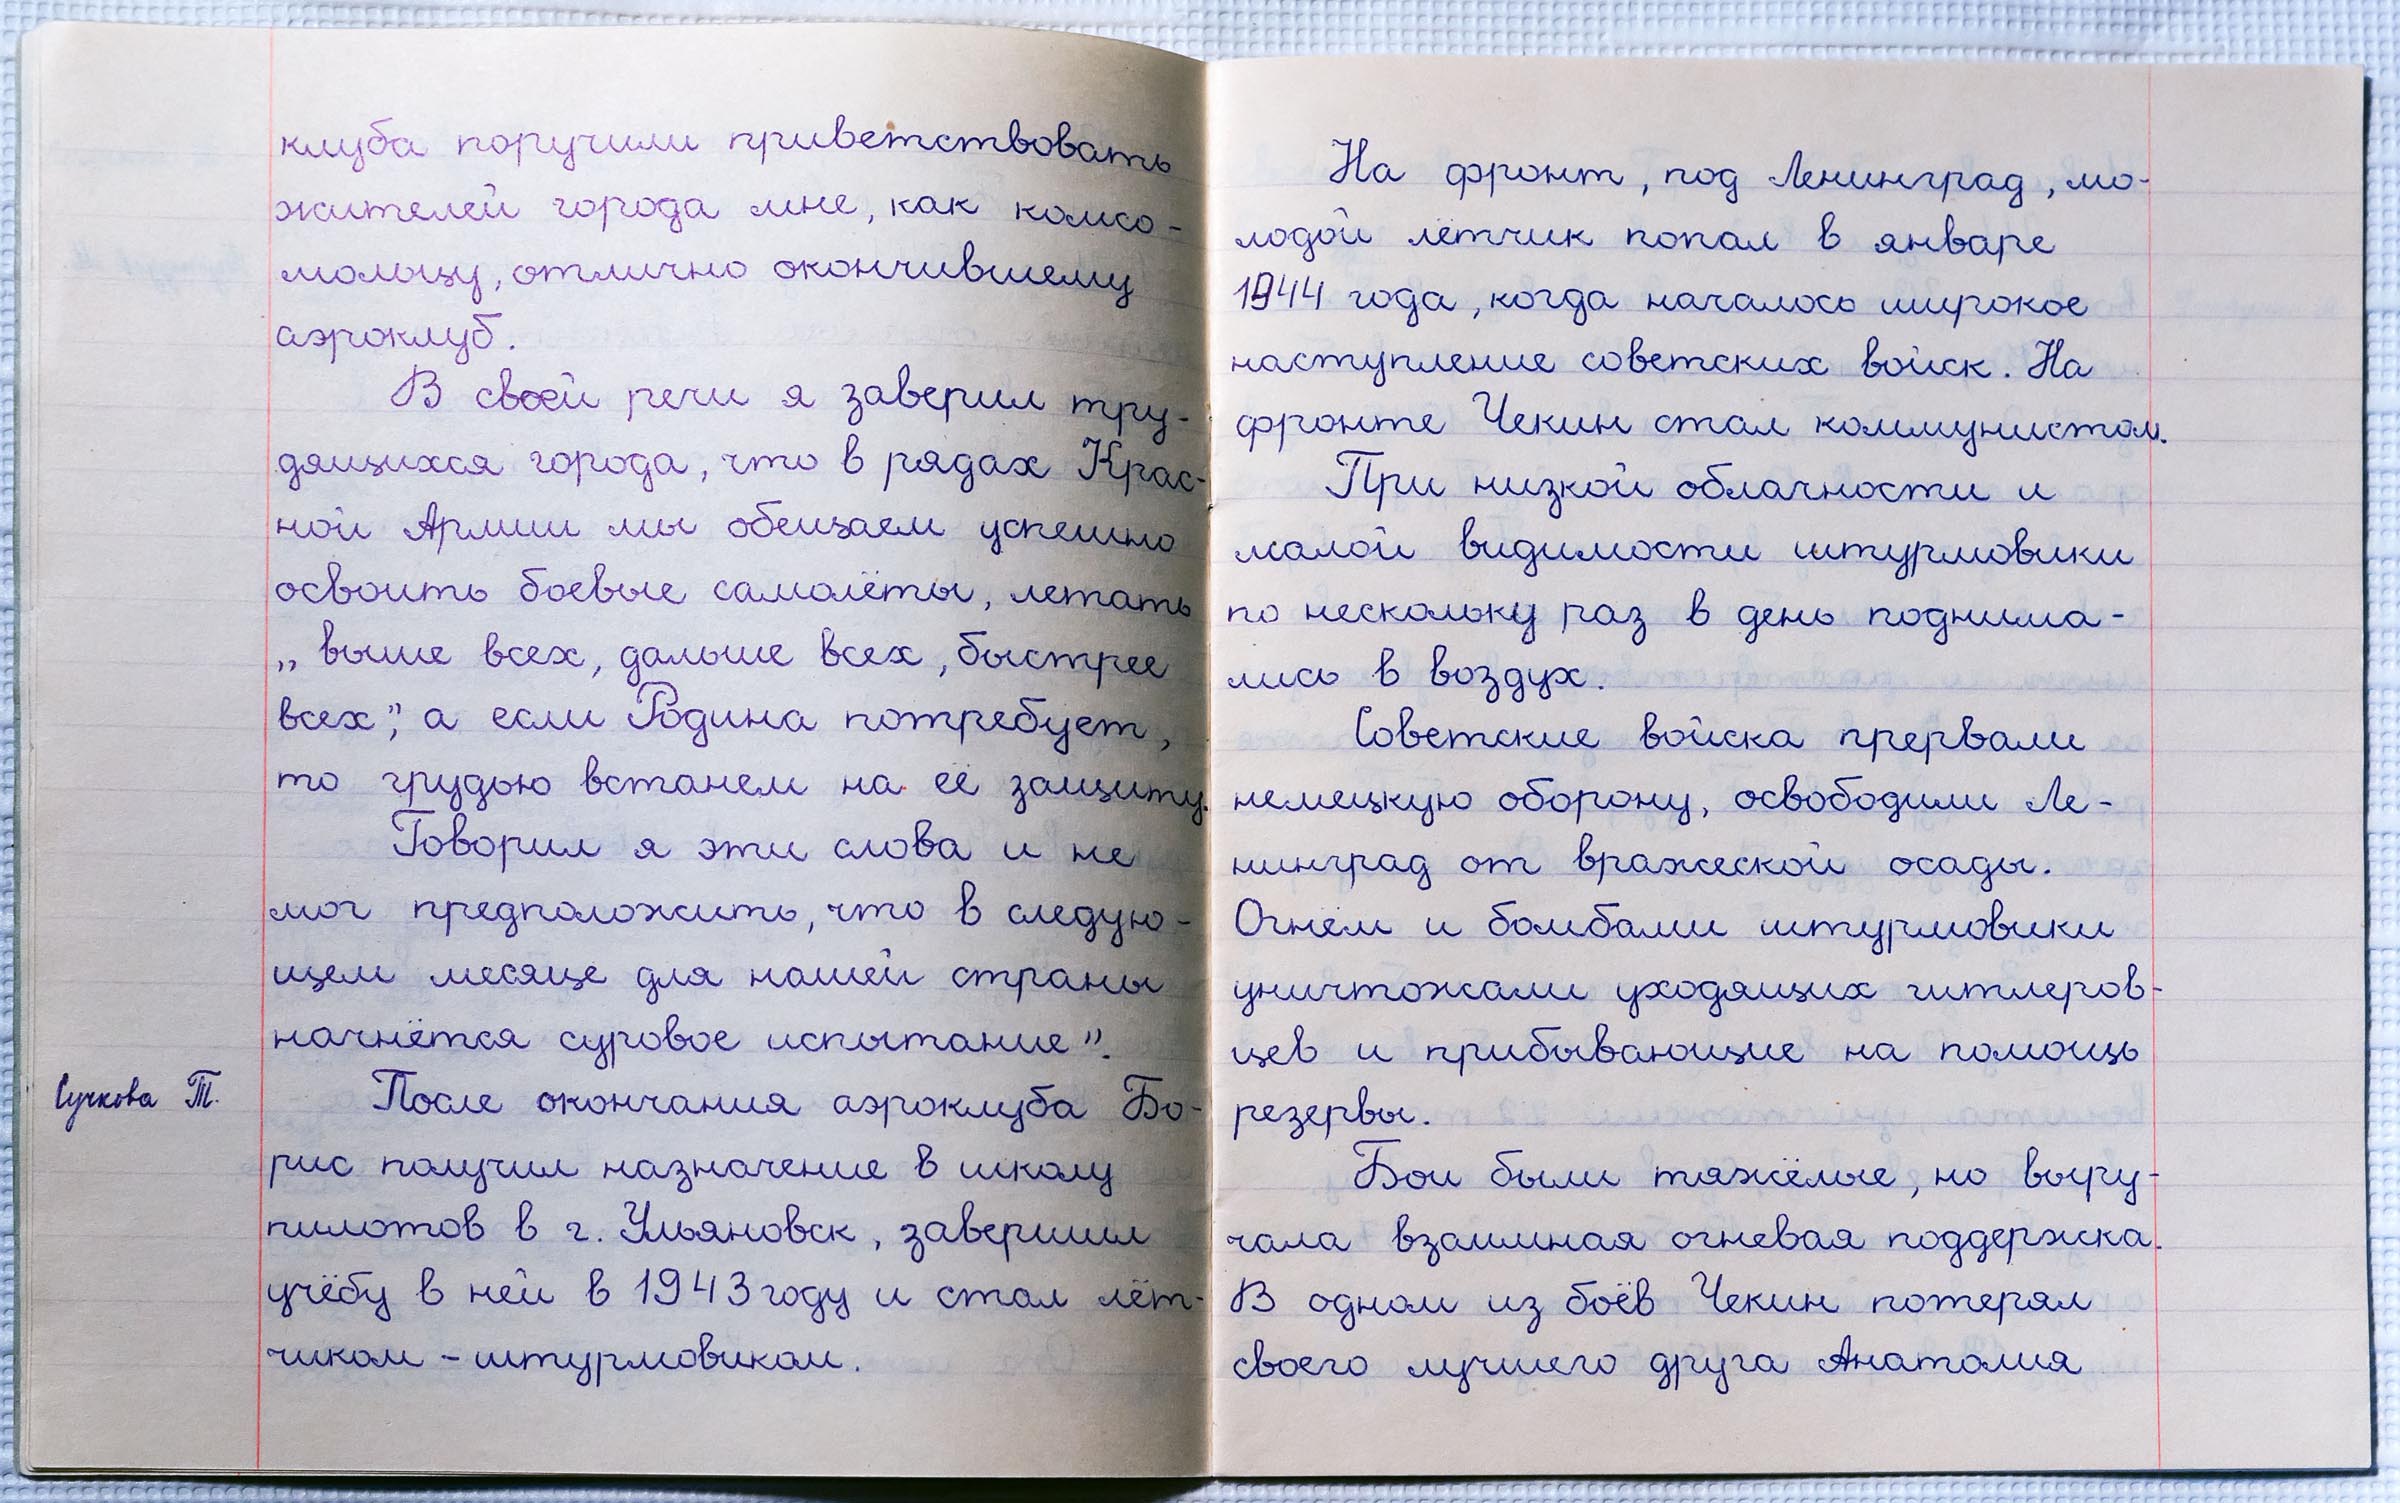 клуба поручили приветствовать
жителей города мне, как комсо-
мольцу, отлично окончившему
аэроклуб.
В своей речи я заверил тру-
дящихся города, что в рядах Крас-
ной Армии мы обещаем успешно
освоить боевые самолёты, летать
„выше всех, дальше всех, быстрее
всех”, а если Родина потребует,
то грудью встанем на её защиту.
Говорил я эти слова и не
мог предположить, что в следую-
щем месяце для нашей страны
начнётся суровое испытание”.
Сучкова Т.
После окончания аэроклуба Бо-
рис получил назначение в школу
пилотов в г. Ульяновск, завершил
учёбу в ней в 1943 году и стал лёт-
чиком - штурмовиком.
На фронт, под Ленинград, мо-
лодой лётчик попал в январе
1944 года, когда началось широкое
наступление советских войск. На
фронте Чекин стал коммунистом.
При низкой облачности и
малой видимости штурмовики
по нескольку раз в день поднима-
лись в воздух.
Советские войска прервали
немецкую оборону, освободили Ле-
нинград от вражеской осады.
Огнём и бомбами штурмовики
уничтожали уходящих гитлеров-
цев и прибывающие на помощь
резервы.
Бои были тяжёлые, но выру-
чала взаимная огневая поддержка.
В одном из боёв Чекин потерял
своего лучшего друга Анатолия